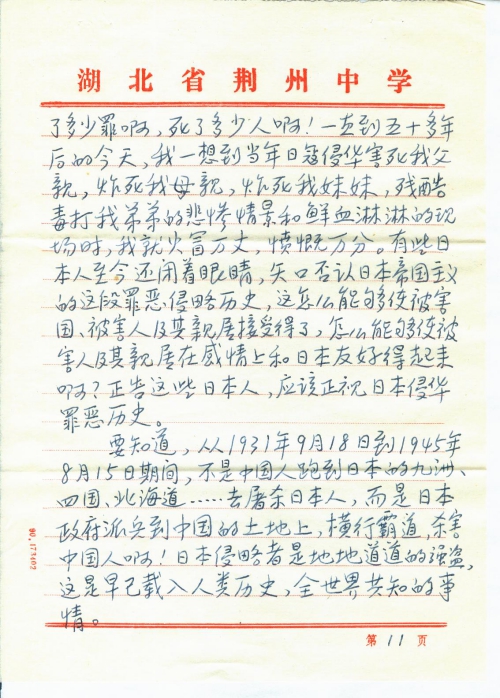 湖北省荆州中学
了多少罪啊，死了多少人啊！一直到五十多年
后的今天，我一想到当年日寇侵华害死我父
亲，炸死我母亲，炸死我妹妹，残酷
毒打我弟弟的悲惨情景和鲜血淋淋的现
场时，我就火冒万丈，愤慨万分。有些日
本人至今还闭着眼睛，矢口否认日本帝国主义
的这段罪恶侵略历史，这怎么能够使被害
国、被害人及其亲属接受得了，怎么能够使被
害人及其亲属在感情上和日本友好得起来
啊？正告这些日本人，应该正视日本侵华
罪恶历史。
要知道，从1931年9月18日到1945年
8月15日期间，不是中国人跑到日本的九洲、
四国、北海道……去屠杀日本人，而是日本
政府派兵到中国的土地上，横行霸道，杀害
中国人啊！日本侵略者是地地道道的强盗，
这是早已载入人类历史，全世界共知的事
情。
第11页